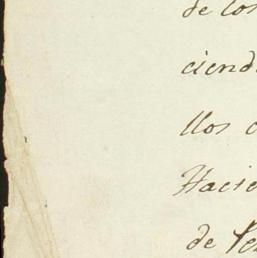 de los
ciend
llos c
Hacie
de Pe